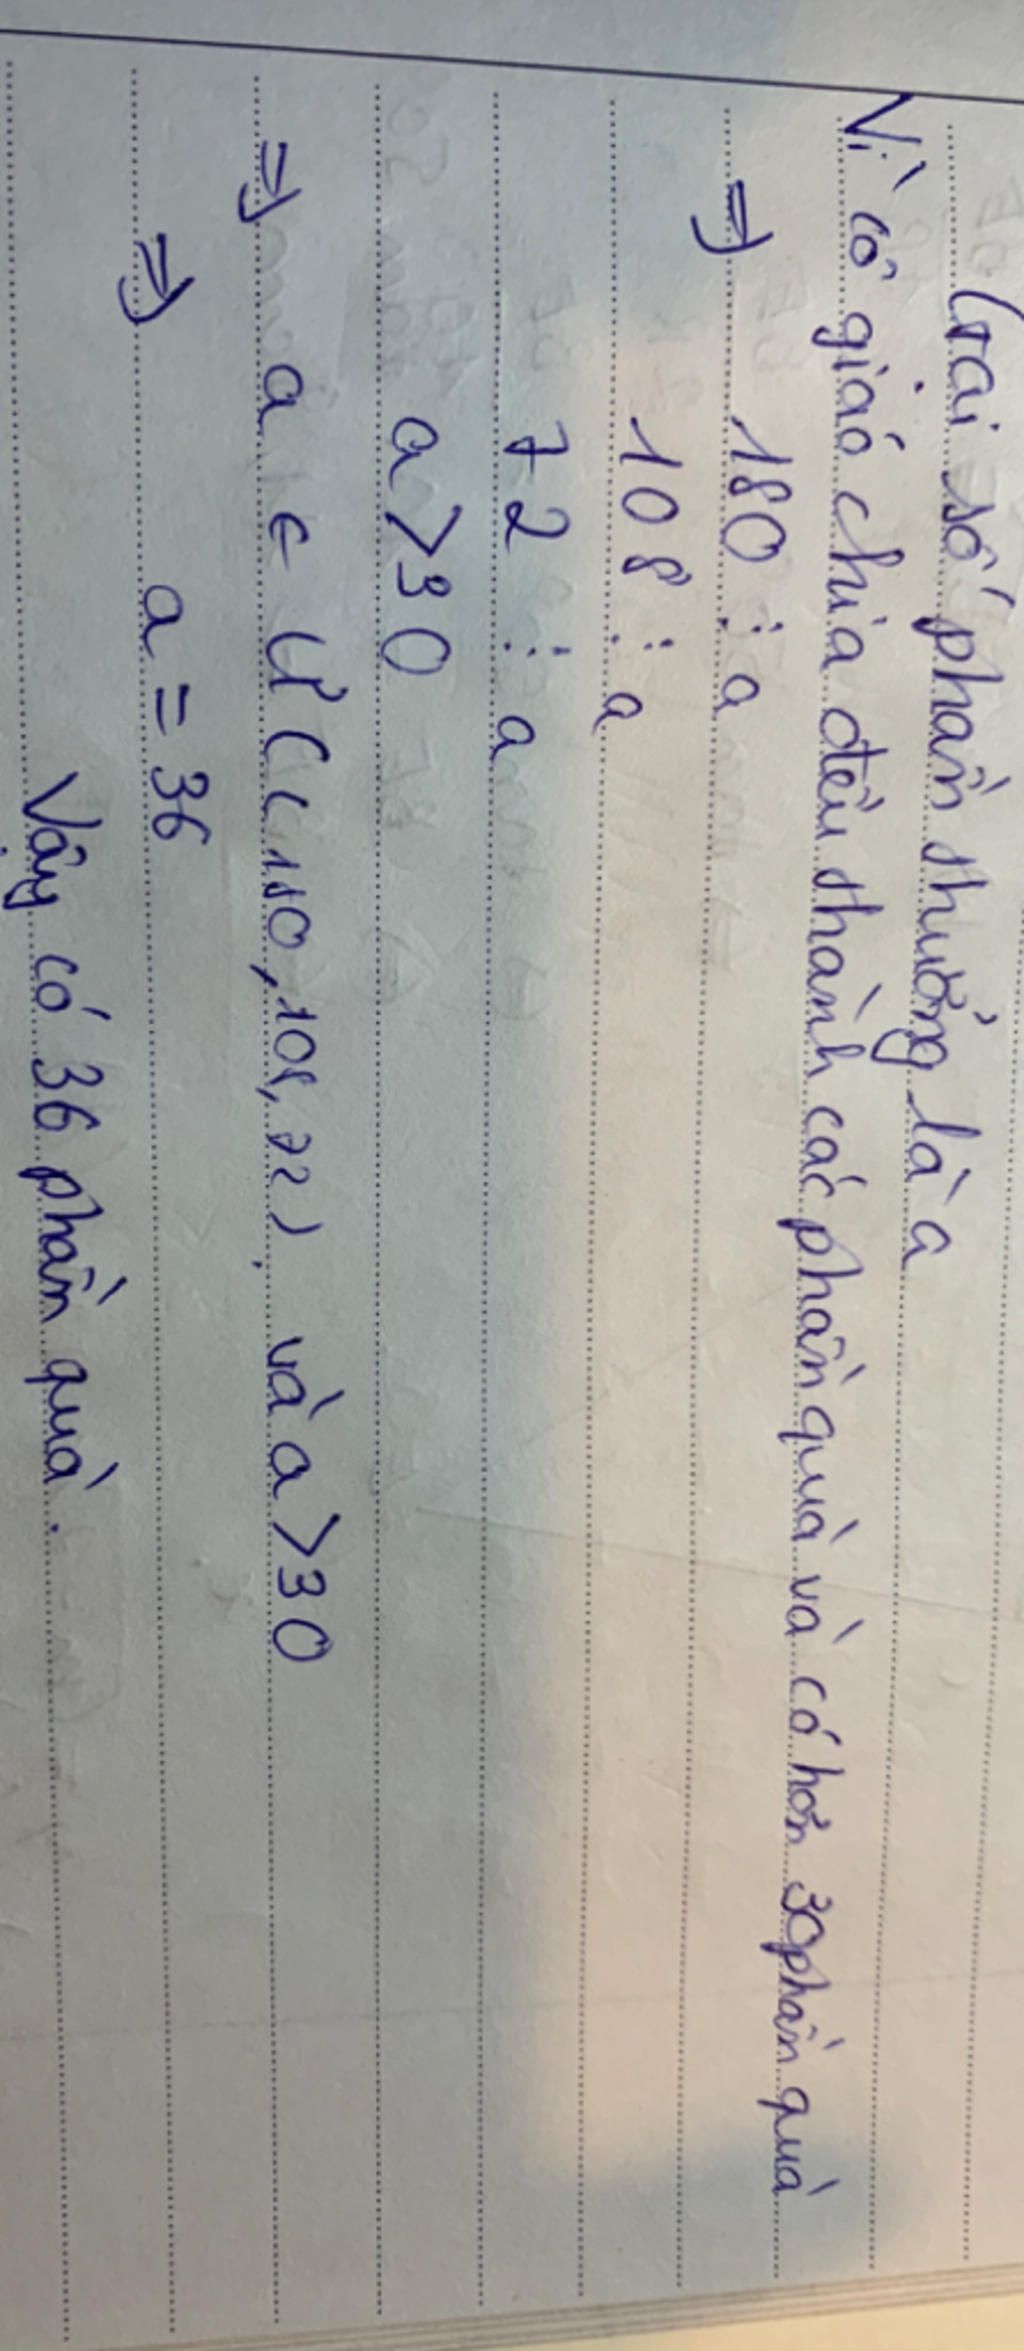 Gọi số phần thưởng là a
Vì cô giáo chia đều thành các phần quà và có hơn 30 phần quà
=> 180 ⋮ a
108 ⋮ a
72 ⋮ a
a > 30
=> a ∈ ƯC (180, 108, 72) và a > 30
=> a = 36
Vậy có 36 phần quà.